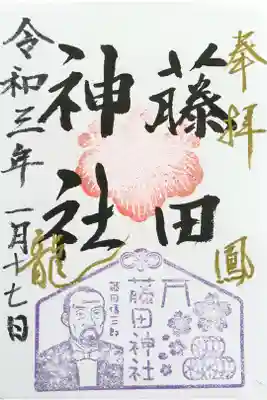 奉拝
鳳
藤田
神社
龍
令和三年一月十七日
藤田神社